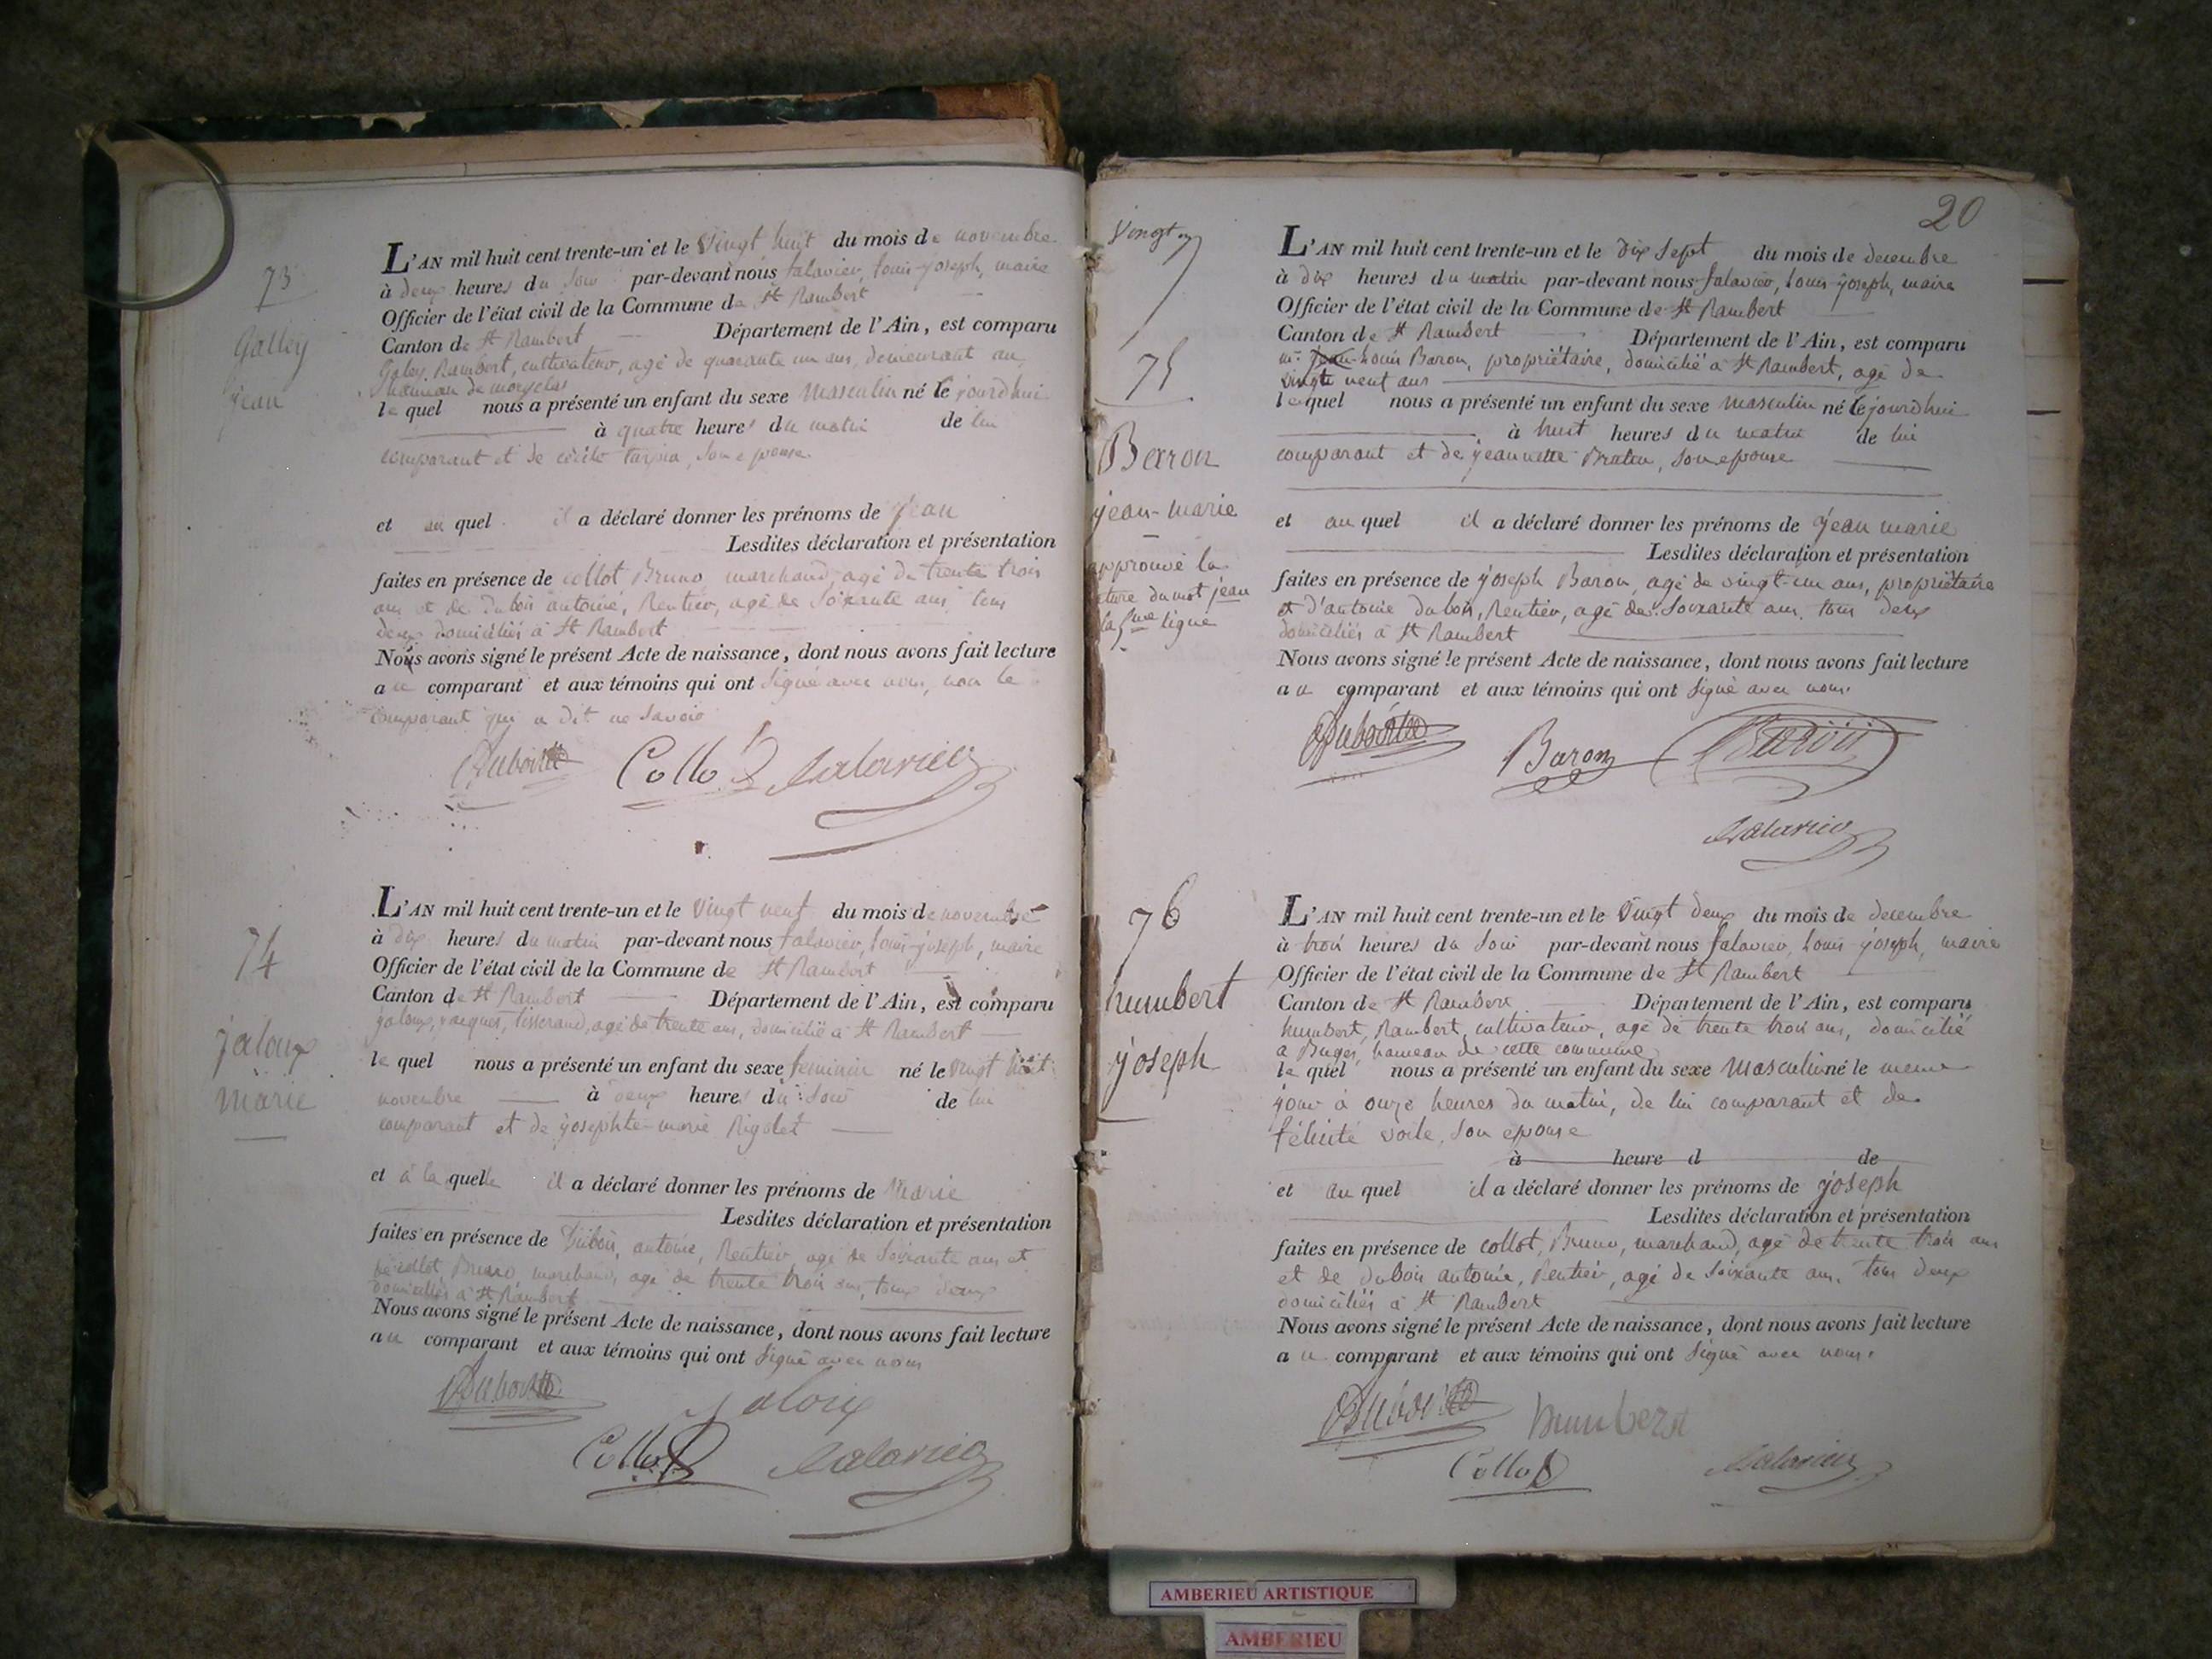 73
Galley
jean
L'AN mil huit cent trente-un et le vingt huit du mois de novembre
à deux heures du soir par-devant nous falavier, louis-joseph, maire
Officier de l'état civil de la Commune de St Rambert
Canton de St Rambert Département de l'Ain, est comparu
Galey, Rambert, cultivateur, agé de quarante un ans, demeurant au
hameau de
le quel nous a présenté un enfant du sexe masculin né le jourd'hui
à quatre heures du matin de lui
comparant et de cécile son epouse
et au quel il a déclaré donner les prénoms de jean
Lesdites déclaration et présentation
faites en présence de collot Bruno marchand, agé de trente trois
ans et de dubois antoine, Rentier, agé de soixante ans, tous
deux domiciliés à St Rambert
Nous avons signé le présent Acte de naissance, dont nous avons fait lecture
au comparant et aux témoins qui ont signé avec nous, non le
comparant qui a dit ne savoir
Dubois Collot
74
jaloux
marie
L'AN mil huit cent trente-un et le vingt neuf du mois de novembre
à dix heures du matin par-devant nous falavier, louis-joseph, maire
Officier de l'état civil de la Commune de St Rambert
Canton de St Rambert Département de l'Ain, est comparu
jaloux, jacques, tisserand, agé de trente ans, domicilié à St Rambert
le quel nous a présenté un enfant du sexe feminin né le vingt huit
novembre à deux heures du soir de lui
comparant et de josephte-marie Rigolet
et à la quelle il a déclaré donner les prénoms de Marie
Lesdites déclaration et présentation
faites en présence de Dubois, antoine, Rentier, agé de soixante ans et
de collot Bruno, marchand, agé de trente trois ans, tous deux
domiciliés à St Rambert
Nous avons signé le présent Acte de naissance, dont nous avons fait lecture
au comparant et aux témoins qui ont signé avec nous
Dubois jaloux
Collot
20
vingt
75
Baron
jean-marie
approuvé la
ture du mot jean
la 5me ligne
L'AN mil huit cent trente-un et le dix sept du mois de decembre
à dix heures du matin par-devant nous falavier, louis-joseph, maire
Officier de l'état civil de la Commune de St Rambert
Canton de St Rambert Département de l'Ain, est comparu
mr jean-louis Baron, propriétaire, domicilié à St Rambert, agé de
vingt neuf ans
lequel nous a présenté un enfant du sexe masculin né le jourd'hui
à huit heures du matin de lui
comparant et de jeannette son epouse
et au quel il a déclaré donner les prénoms de jean marie
Lesdites déclaration et présentation
faites en présence de joseph Baron, agé de vingt-un ans, propriétaire
et d'antoine dubois, Rentier, agé de soixante ans, tous deux
domiciliés à St Rambert
Nous avons signé le présent Acte de naissance, dont nous avons fait lecture
au comparant et aux témoins qui ont signé avec nous.
Dubois Baron Baron
76
humbert
joseph
L'AN mil huit cent trente-un et le vingt deux du mois de decembre
à trois heures du soir par-devant nous falavier, louis joseph, maire
Officier de l'état civil de la Commune de St Rambert
Canton de St Rambert Département de l'Ain, est comparu
humbert, Rambert, cultivateur, agé de trente trois ans, domicilié
a Buges, hameau de cette commune
le quel nous a présenté un enfant du sexe masculin né le meme
jour à onze heures du matin, de lui comparant et de
félicité son epouse
à heure d de
et au quel il a déclaré donner les prénoms de joseph
Lesdites déclaration et présentation
faites en présence de collot, Bruno, marchand, agé de trente trois ans
et de dubois antoine, Rentier, agé de soixante ans, tous deux
domiciliés à St Rambert
Nous avons signé le présent Acte de naissance, dont nous avons fait lecture
au comparant et aux témoins qui ont signé avec nous.
Dubois humbert
Collot
AMBERIEU ARTISTIQUE
AMBERIEU